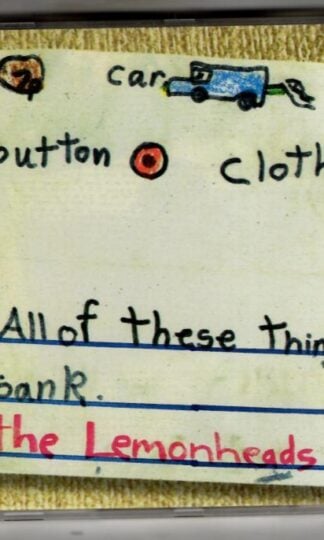 car
button cloth
All of these thin
sank.
the Lemonheads